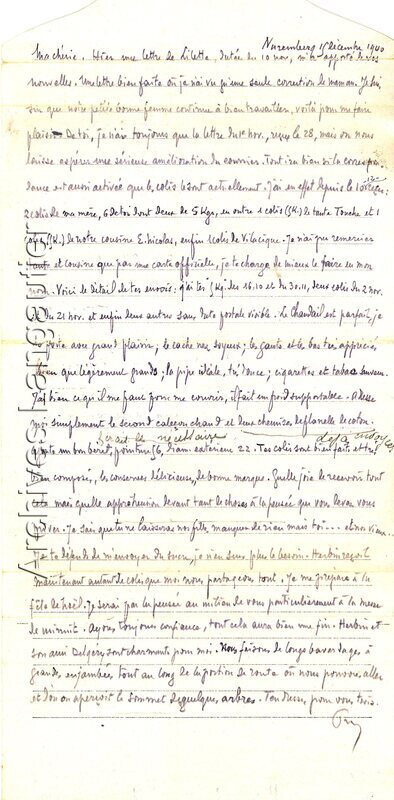 Nuremberg 15 décembre 1940
Ma chérie. Hier une lettre de Lilette, datée du 10 nov, m'a apporté de vos
nouvelles. Une lettre bien faite où je n'ai vu qu'une seule correction de maman. Je suis
sûr que notre petite bonne femme continue à bien travailler, voilà pour me faire
plaisir. De toi, je n'ai toujours que la lettre du 1er nov., reçue le 28, mais on nous
laisse espérer une sérieuse amélioration du courrier. Tout ira bien si la correspon-
dance est aussi activée que les colis le sont actuellement. J'ai en effet depuis le 10 reçu
2 colis de ma mère, 6 de toi dont deux de 5 Kgs, en outre 1 colis (1K.) de tante Touche et 1
colis (1K.) de notre cousine E. Nicolas, enfin 1 colis de Vilacique. Je n'ai pu remercier
tante et cousine que par une carte officielle, je te charge de mieux le faire en mon
nom. Voici le détail de tes envois: 
 du 21 nov. et enfin deux autres sans date postale visible. Le Chandail est parfait, je
le porte avec grand plaisir; le cache nez soyeux; les gants et les bas très appréciés
bien que légèrement grands; la pipe idéale, très douce; cigarettes et tabac 
J'ai bien ce qu'il me faut pour me couvrir, il fait un froid supportable. Adresse
moi simplement le second caleçon chaud et deux chemises de flanelle de coton.
serait le nécessaire déjà envoyées
 un bon béret, pointure 56, diam. extérieur 22. Tes colis sont bien faits et très
bien composés, les conserves délicieuses, de bonne marque. Quelle joie de recevoir tout
cela mais quelle appréhension devant tant de choses à la pensée que vous devez vous
priver. Je sais que tu ne laisseras nos filles manquer de rien mais toi... et nos vieux...
Je te défends de m'envoyer du sucre, je n'en sens plus le besoin. Herbin reçoit
maintenant autant de colis que moi nous partageons tout. Je me prépare à la
fête de Noël. Je serai par la pensée au milieu de vous particulièrement à la messe
de minuit. Ayons toujours confiance, tout cela aura bien une fin. Herbin et
son ami Delgery sont charmants pour moi. Nous faisons de longs bavardages, à
grandes enjambées, tout au long de la portion de route où nous pouvons aller
et d'où on aperçoit le sommet de quelques arbres. Tendresses pour vous trois.
Archives Dujardin